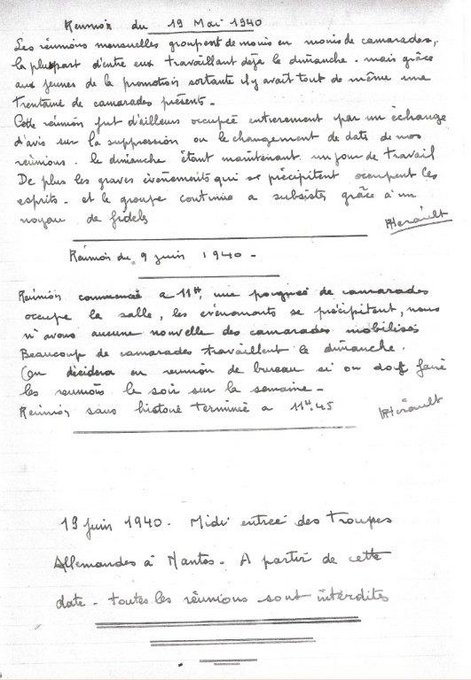 Reunion du 19 Mai 1940
Les réunions mensuelles groupent de moins en moins de camarades,
la plupart d'entre eux travaillant déjà le dimanche. mais grâce
aux jeunes de la promotion sortante il y avait tout de même une
trentaine de camarades présents.
Cette réunion fut d'ailleurs occupée entierement par un échange
d'avis sur la suppression ou le changement de date de nos
réunions. le dimanche étant maintenant un jour de travail
De plus les graves évènements qui se précipitent occupent les
esprits. et le groupe continue a subsister grâce à un
noyau de fidels
RHerault
Réunion du 9 juin 1940 -
Reunion commencée a 11H, une poignée de camarades
occupe la salle, les évènements se précipitent, nous
n'avons aucune nouvelle des camarades mobilisés
Beaucoup de camarades travaillent le dimanche.
On décidera en reunion de bureau si on doit faire
les reunions le soir sur la semaine -
Reunion sans histoire terminée a 11H.45
RHérault
19 juin 1940. Midi entrée des troupes
Allemandes à Nantes. A partir de cette
date - toutes les réunions sont interdites